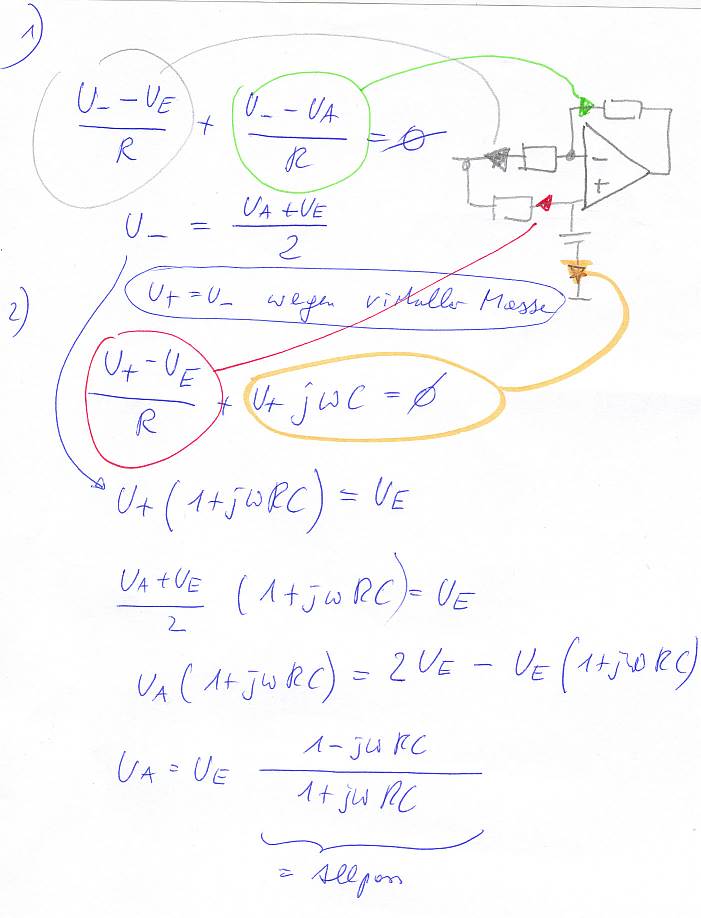 1)
(U₋ − U_E)/R + (U₋ − U_A)/R = 0
− +
U₋ = (U_A + U_E)/2
2)
U₊ = U₋ wegen virtueller Masse
(U₊ − U_E)/R + U₊ jωC = 0
U₊ (1+jωRC) = U_E
(U_A + U_E)/2 (1+jωRC) = U_E
U_A (1+jωRC) = 2U_E − U_E (1+jωRC)
U_A = U_E (1−jωRC)/(1+jωRC)
= Allpass